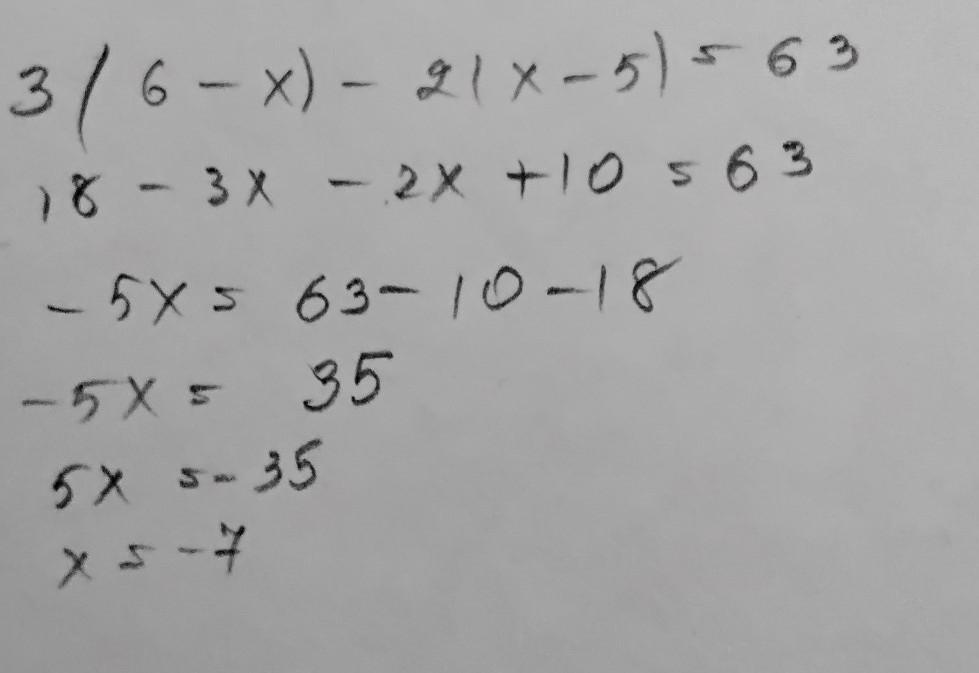 3(6-x)-2(x-5)=63
18-3x-2x+10=63
-5x=63-10-18
-5x=35
5x=-35
x=-7